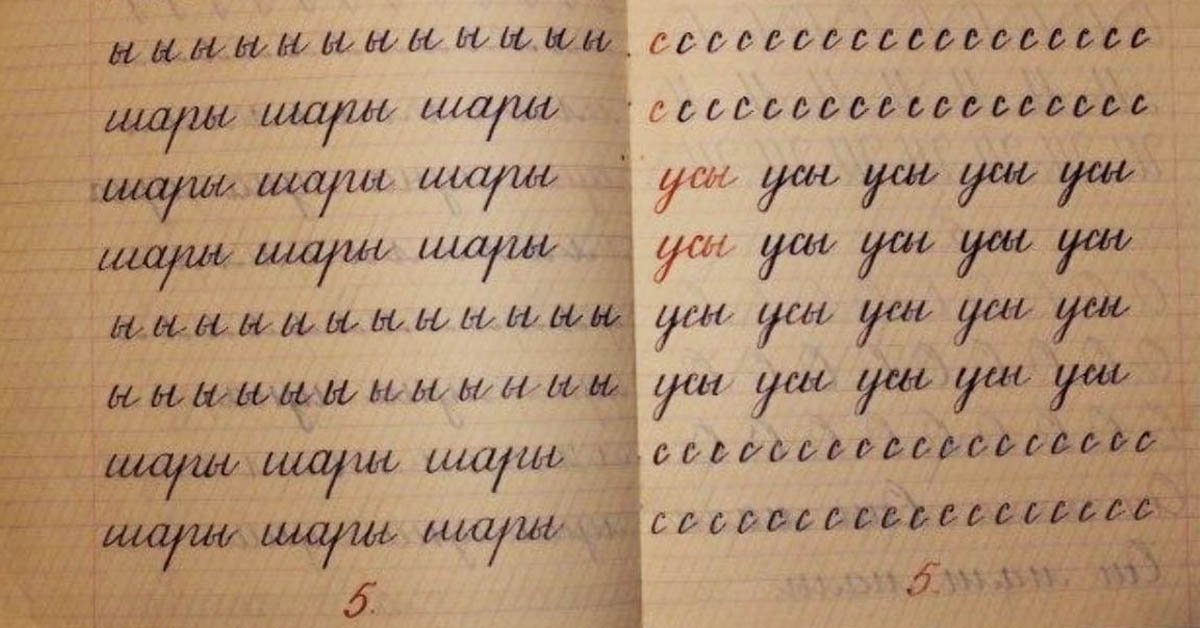 ы ы ы ы ы ы ы ы ы ы ы ы
шары шары шары
шары шары шары
шары шары шары
ы ы ы ы ы ы ы ы ы ы ы ы
ы ы ы ы ы ы ы ы ы ы ы ы
шары шары шары
шары шары шары
5.
с с с с с с с с с с с с с с с с с с
с с с с с с с с с с с с с с с с с с
усы усы усы усы усы
усы усы усы усы усы
усы усы усы усы усы
усы усы усы усы усы
с с с с с с с с с с с с с с с с с с
с с с с с с с с с с с с с с с с с с
5.